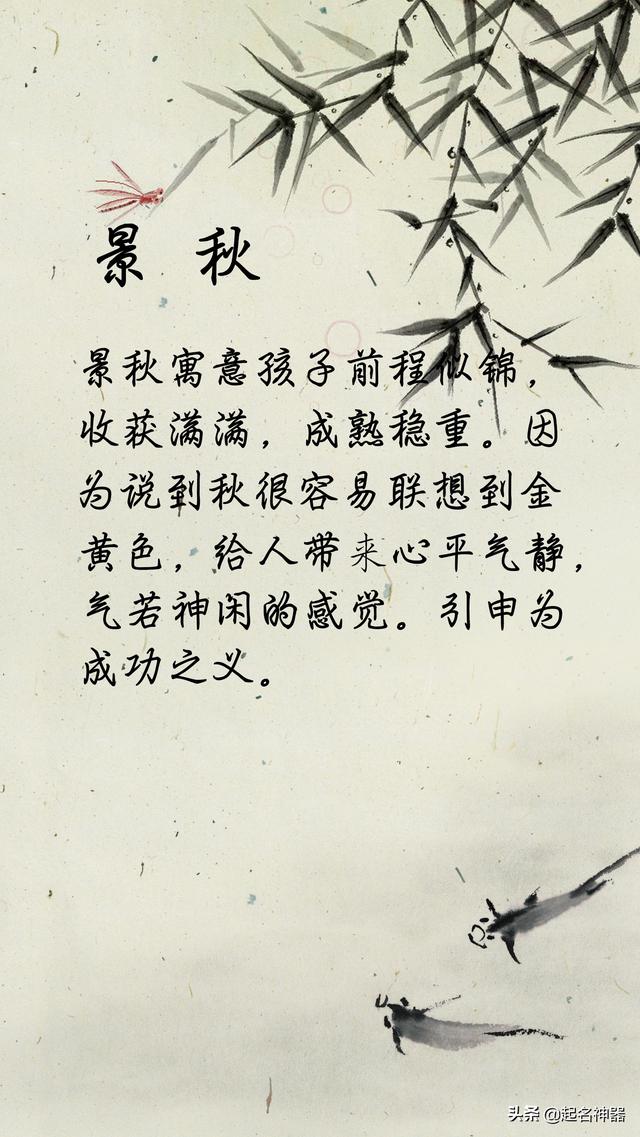 景 秋
景秋寓意孩子前程似锦，
收获满满，成熟稳重。因
为说到秋很容易联想到金
黄色，给人带来心平气静，
气若神闲的感觉。引申为
成功之义。
头条 @起名神器